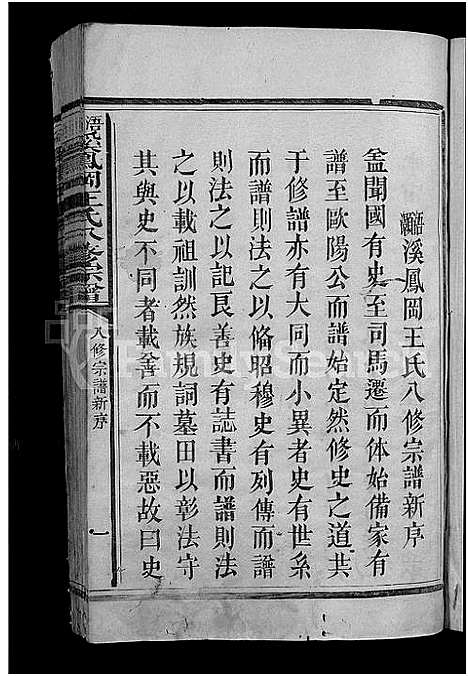 溪鳳岡王氏八修宗譜新序
盖聞國有史至司馬遷而体始備家有
譜至歐陽公而譜始定然修史之道其
于修譜亦有大同而小異者史有世系
而譜則法之以脩昭穆史有列傳而譜
則法之以記良善史有誌書而譜則法
之以載祖訓然族規詞墓田以彰法守
其與史不同者載善而不載惡故曰史
溪鳳岡王氏八修宗譜
八修宗譜新序
一
FamilySearch